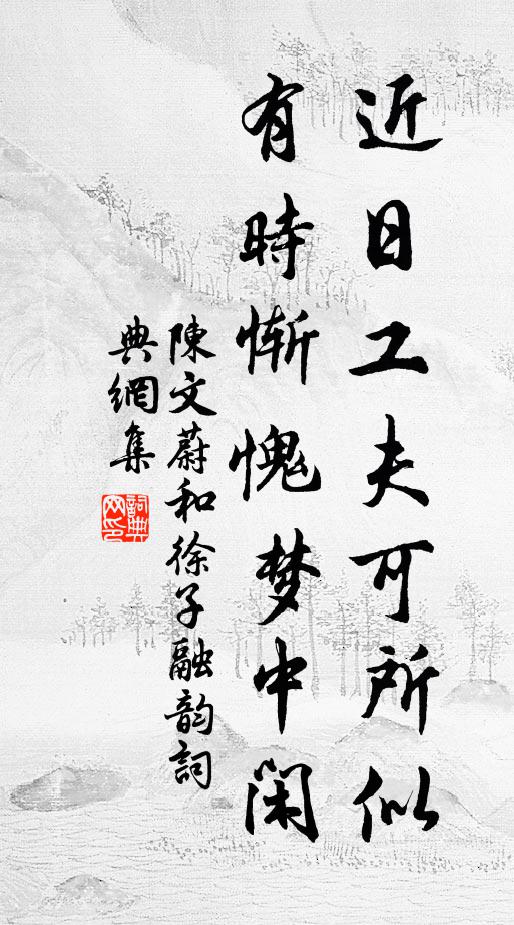 近日工夫可所似
有時慚愧梦中闲
陳文蔚和徐子融韵詞
典網集
詞典
网印